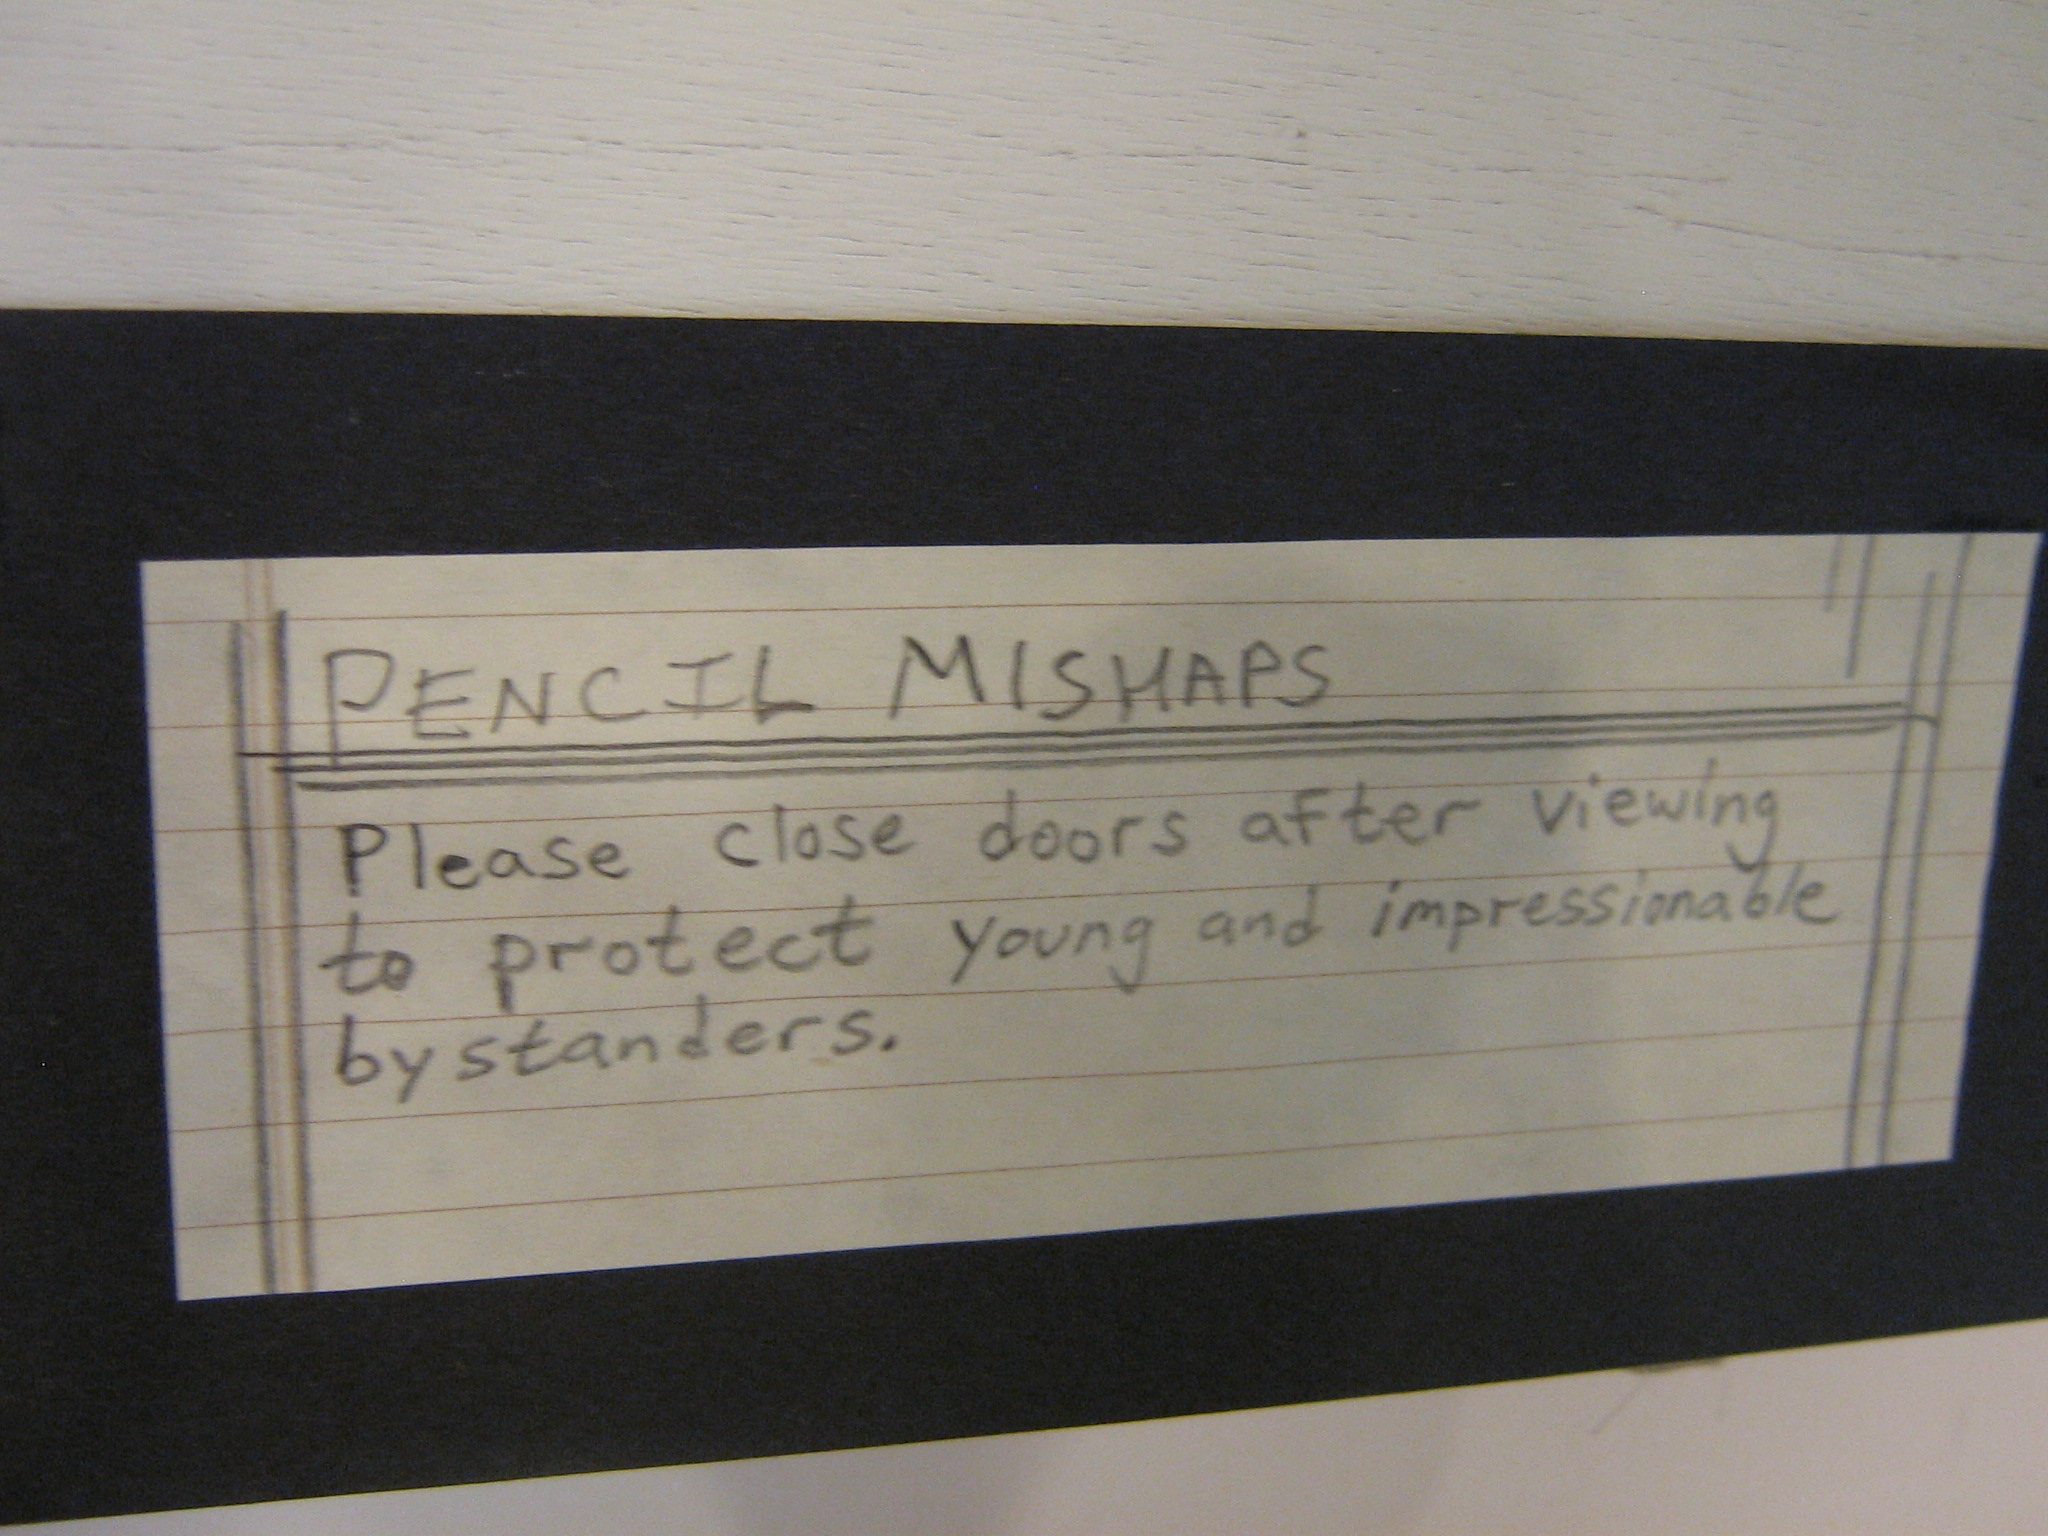 PENCIL MISHAPS
Please close doors after viewing
to protect young and impressionable
bystanders.